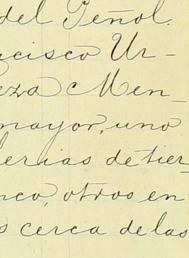 del Peñol.
ncisco Ur-
eza Men-
mayor, uno
lerias de tier-
nco, otros en
s cerca de las